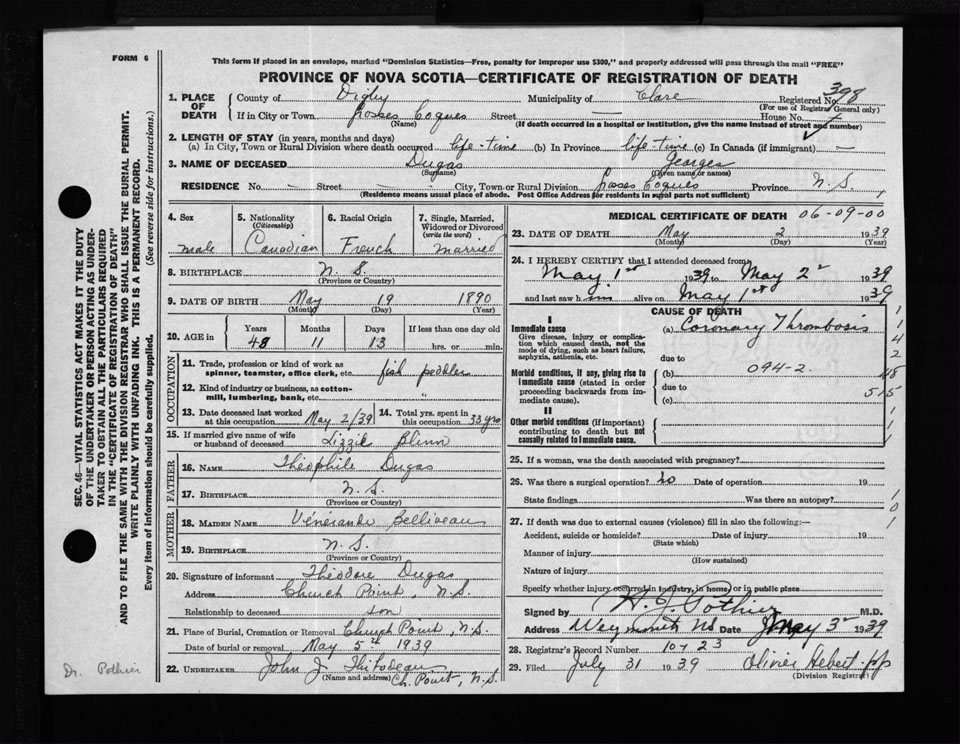 FORM 6
This form if placed in an envelope, marked "Dominion Statistics—Free, penalty for improper use $300," and properly addressed will pass through the mail "FREE"
PROVINCE OF NOVA SCOTIA—CERTIFICATE OF REGISTRATION OF DEATH
SEC. 46—VITAL STATISTICS ACT MAKES IT THE DUTY
OF THE UNDERTAKER OR PERSON ACTING AS UNDER-
TAKER TO OBTAIN ALL THE PARTICULARS REQUIRED
IN THE "CERTIFICATE OF REGISTRATION OF DEATH"
AND TO FILE THE SAME WITH THE DIVISION REGISTRAR WHO SHALL ISSUE THE BURIAL PERMIT.
WRITE PLAINLY WITH UNFADING INK. THIS IS A PERMANENT RECORD.
Every item of information should be carefully supplied. (See reverse side for instructions.)
1. PLACE OF DEATH
County of Digby Municipality of Clare Registered No. 398
(For use of Registrar General only)
If in City or Town Grosses Coques Street — House No.
(Name) (If death occurred in a hospital or institution, give the name instead of street and number)
2. LENGTH OF STAY (in years, months and days)
(a) In City, Town or Rural Division where death occurred life-time (b) In Province life-time (c) In Canada (if immigrant) —
3. NAME OF DECEASED Dugas Georges
(Surname) (Given name or names)
RESIDENCE No. — Street — City, Town or Rural Division Grosses Coques Province N.S.
(Residence means usual place of abode. Post Office Address for residents in rural parts not sufficient)
4. Sex
male
5. Nationality
(Citizenship)
Canadian
6. Racial Origin
French
7. Single, Married,
Widowed or Divorced
(write the word)
married
8. BIRTHPLACE N.S.
(Province or Country)
9. DATE OF BIRTH May 19 1890
(Month) (Day) (Year)
10. AGE in
Years Months Days If less than one day old
48 11 13 hrs. or min.
OCCUPATION
11. Trade, profession or kind of work as
spinner, teamster, office clerk, etc. fish peddler
12. Kind of industry or business, as cotton-
mill, lumbering, bank, etc. "
13. Date deceased last worked
at this occupation May 2/39
14. Total yrs. spent in
this occupation 33 yrs
15. If married give name of wife
or husband of deceased Lizzie Blinn
FATHER
16. NAME Théophile Dugas
17. BIRTHPLACE N.S.
(Province or Country)
MOTHER
18. MAIDEN NAME Vénérande Belliveau
19. BIRTHPLACE N.S.
(Province or Country)
20. Signature of informant Théodore Dugas
Address Church Point, N.S.
Relationship to deceased son
21. Place of Burial, Cremation or Removal Church Point, N.S.
Date of burial or removal May 5th 1939
22. UNDERTAKER John J. Thibodeau
(Name and address) Ch. Point, N.S.
MEDICAL CERTIFICATE OF DEATH 06-09-00
23. DATE OF DEATH May 2 1939
(Month) (Day) (Year)
24. I HEREBY CERTIFY that I attended deceased from
May 1st 1939 to May 2 1939
and last saw him alive on May 1st 1939
CAUSE OF DEATH
I
Immediate cause (a) Coronary Thrombosis
Give disease, injury or complica-
tion which caused death, not the
mode of dying, such as heart failure,
asphyxia, asthenia, etc.
due to
Morbid conditions, if any, giving rise to
immediate cause (stated in order
proceeding backwards from im-
mediate cause).
(b) 094-2
due to
(c)
II
Other morbid conditions (if important)
contributing to death but not
causally related to immediate cause.
1
1
4
2
48
515
1
1
1
25. If a woman, was the death associated with pregnancy?
26. Was there a surgical operation? no Date of operation 19
State findings Was there an autopsy?
1
0
1
27. If death was due to external causes (violence) fill in also the following:—
Accident, suicide or homicide? Date of injury 19
(State which)
Manner of injury
(How sustained)
Nature of injury
Specify whether injury occurred in industry, in home, or in public place
Signed by H. J. Pothier M.D.
Address Weymouth NS Date May 3 1939
28. Registrar's Record Number 10723
29. Filed July 31 1939 Olivier Hebert
(Division Registrar)
Dr. Pothier